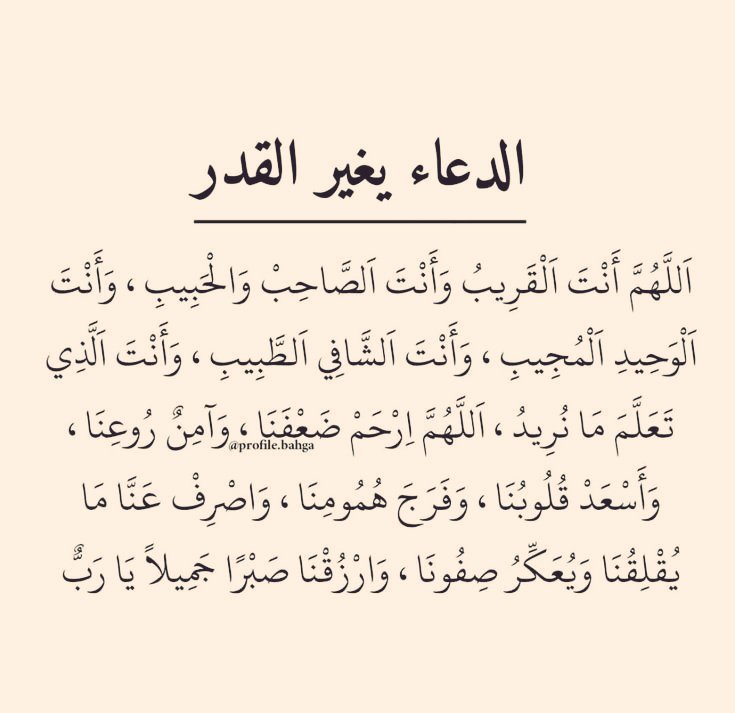 الدعاء يغير القدر
اَللَّهُمَّ أَنْتَ اَلْقَرِيبُ وَأَنْتَ اَلصَّاحِبْ وَالْحَبِيبِ ، وَأَنْتَ
اَلْوَحِيدِ اَلْمُجِيبِ ، وَأَنْتَ اَلشَّافِي اَلطَّبِيبِ ، وَأَنْتَ اَلَّذِي
تَعَلَّمَ مَا نُرِيدُ ، اَللَّهُمَّ اِرْحَمْ ضَعْفَنَا ، وَآمِنٌ رُوعِنَا ،
@profile.bahga
وَأَسْعَدْ قُلُوبُنَا ، وَفَرَجَ هُمُومِنَا ، وَاصْرِفْ عَنَّا مَا
يُقْلِقُنَا وَيُعَكِّرُ صِفُونَا ، وَارْزُقْنَا صَبْرًا جَمِيلاً يَا رَبٌّ